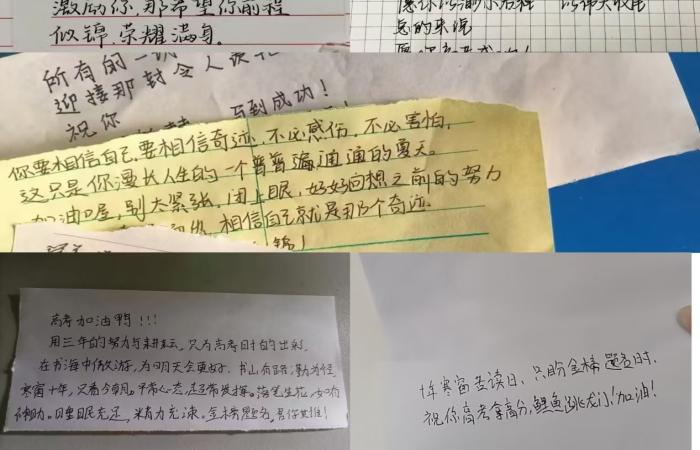 激励你,那希望你前程
似锦,荣耀满身.
总的来说
所有的一
迎接那封令人
祝你
马到成功!
你要相信自己,要相信奇迹,不必感伤,不必害怕,
这只是你漫长人生的一个普普遍通通的夏天。
加油喔,别太紧张,闭上眼,好好回想之前的努力
相信自己就是那个奇迹.
高考加油鸭!!!
用三年的努力与耕耘,只为高考时的出彩.
在书海中傲游,为明天会更好.书山有路勤为径
寒窗十年,只看今朝.平常心态,超常发挥.落笔生花,如有
神助.日里眼充足,精力充沛.金榜题名,
十年寒窗苦读日,只盼金榜题名时.
祝你高考拿高分,鲤鱼跳龙门!加油!